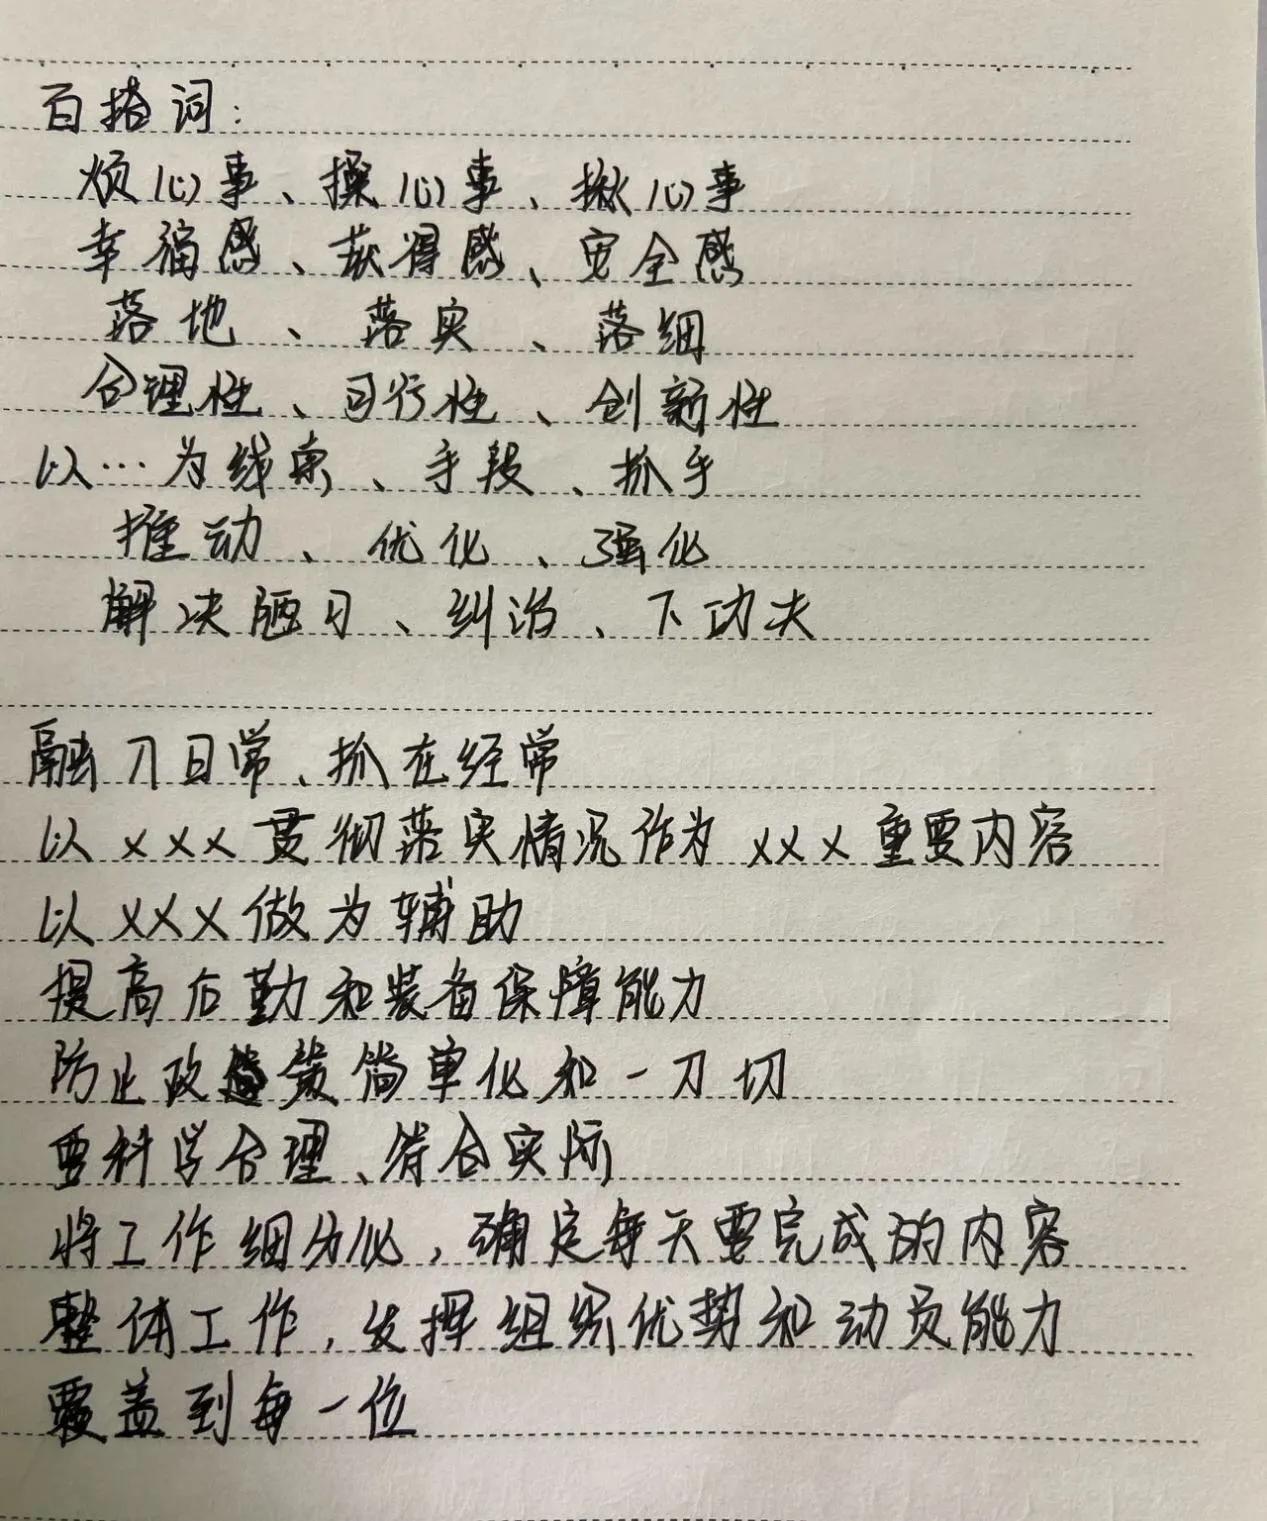 百搭词:
烦心事、操心事、揪心事
幸福感、获得感、安全感
落地、落实、落细
合理性、可行性、创新性
以…为线索、手段、抓手
推动、优化、强化
解决陋习、纠治、下功夫
融入日常、抓在经常
以×××贯彻落实情况作为×××重要内容
以×××做为辅助
提高后勤和装备保障能力
防止政策简单化和一刀切
要科学合理、符合实际
将工作细分化,确定每天要完成的内容
整体工作,发挥组织优势和动员能力
覆盖到每一位